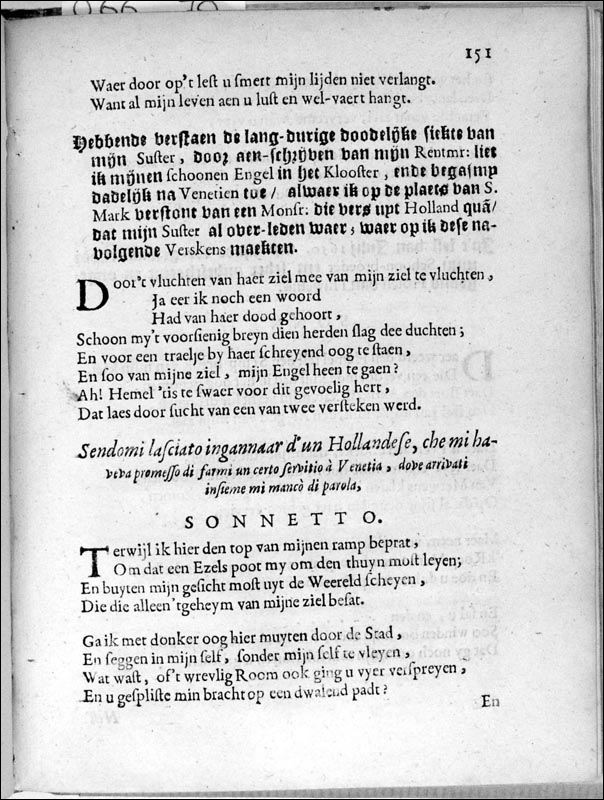 151
Waer door op't lest u smert mijn lijden niet verlangt.
Want al mijn leven aen u lust en wel-vaert hangt.
Hebbende verstaen de lang-durige doodelijke siekte van
mijn Suster, door aen-schrijven van mijn Rentmr: liet
ik mijnen schoonen Engel in het Klooster, ende begaf my
dadelijk na Venetien toe / alwaer ik op de plaets van S.
Mark verstont van een Monsr: die vers uyt Holland quã/
dat mijn Suster al over-leden waer; waer op ik dese na-
volgende Verskens maekten.
Doot't vluchten van haer ziel mee van mijn ziel te vluchten,
Ja eer ik noch een woord
Had van haer dood gehoort,
Schoon my't voorsienig breyn dien herden slag dee duchten;
En voor een traelje by haer schreyend oog te staen,
En soo van mijne ziel, mijn Engel heen te gaen?
Ah! Hemel 'tis te swaer voor dit gevoelig hert,
Dat laes door sucht van een van twee versteken werd.
Sendomi lasciato ingannaar d'un Hollandese, che mi ha-
veva promesso di farmi un certo servitio à Venetia, dove arrivati
insieme mi mancò di parola,
SONNETTO.
Terwijl ik hier den top van mijnen ramp beprat,
Om dat een Ezels poot my om den thuyn most leyen;
En buyten mijn gesicht most uyt de Weereld scheyen,
Die die alleen 'tgeheym van mijne ziel besat.
Ga ik met donker oog hier muyten door de Stad,
En seggen in mijn self, sonder mijn self te vleyen,
Wat wast, of't wrevlig Room ook ging u vyer verspreyen,
En u gespliste min bracht op een dwalend padt?
En